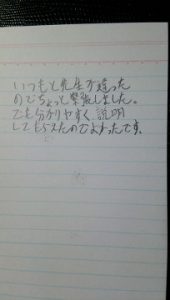 いつもと先生が違った
のでちょっと緊張しました。
でも分かりやすく、説明
してもらえたのでよかったです。